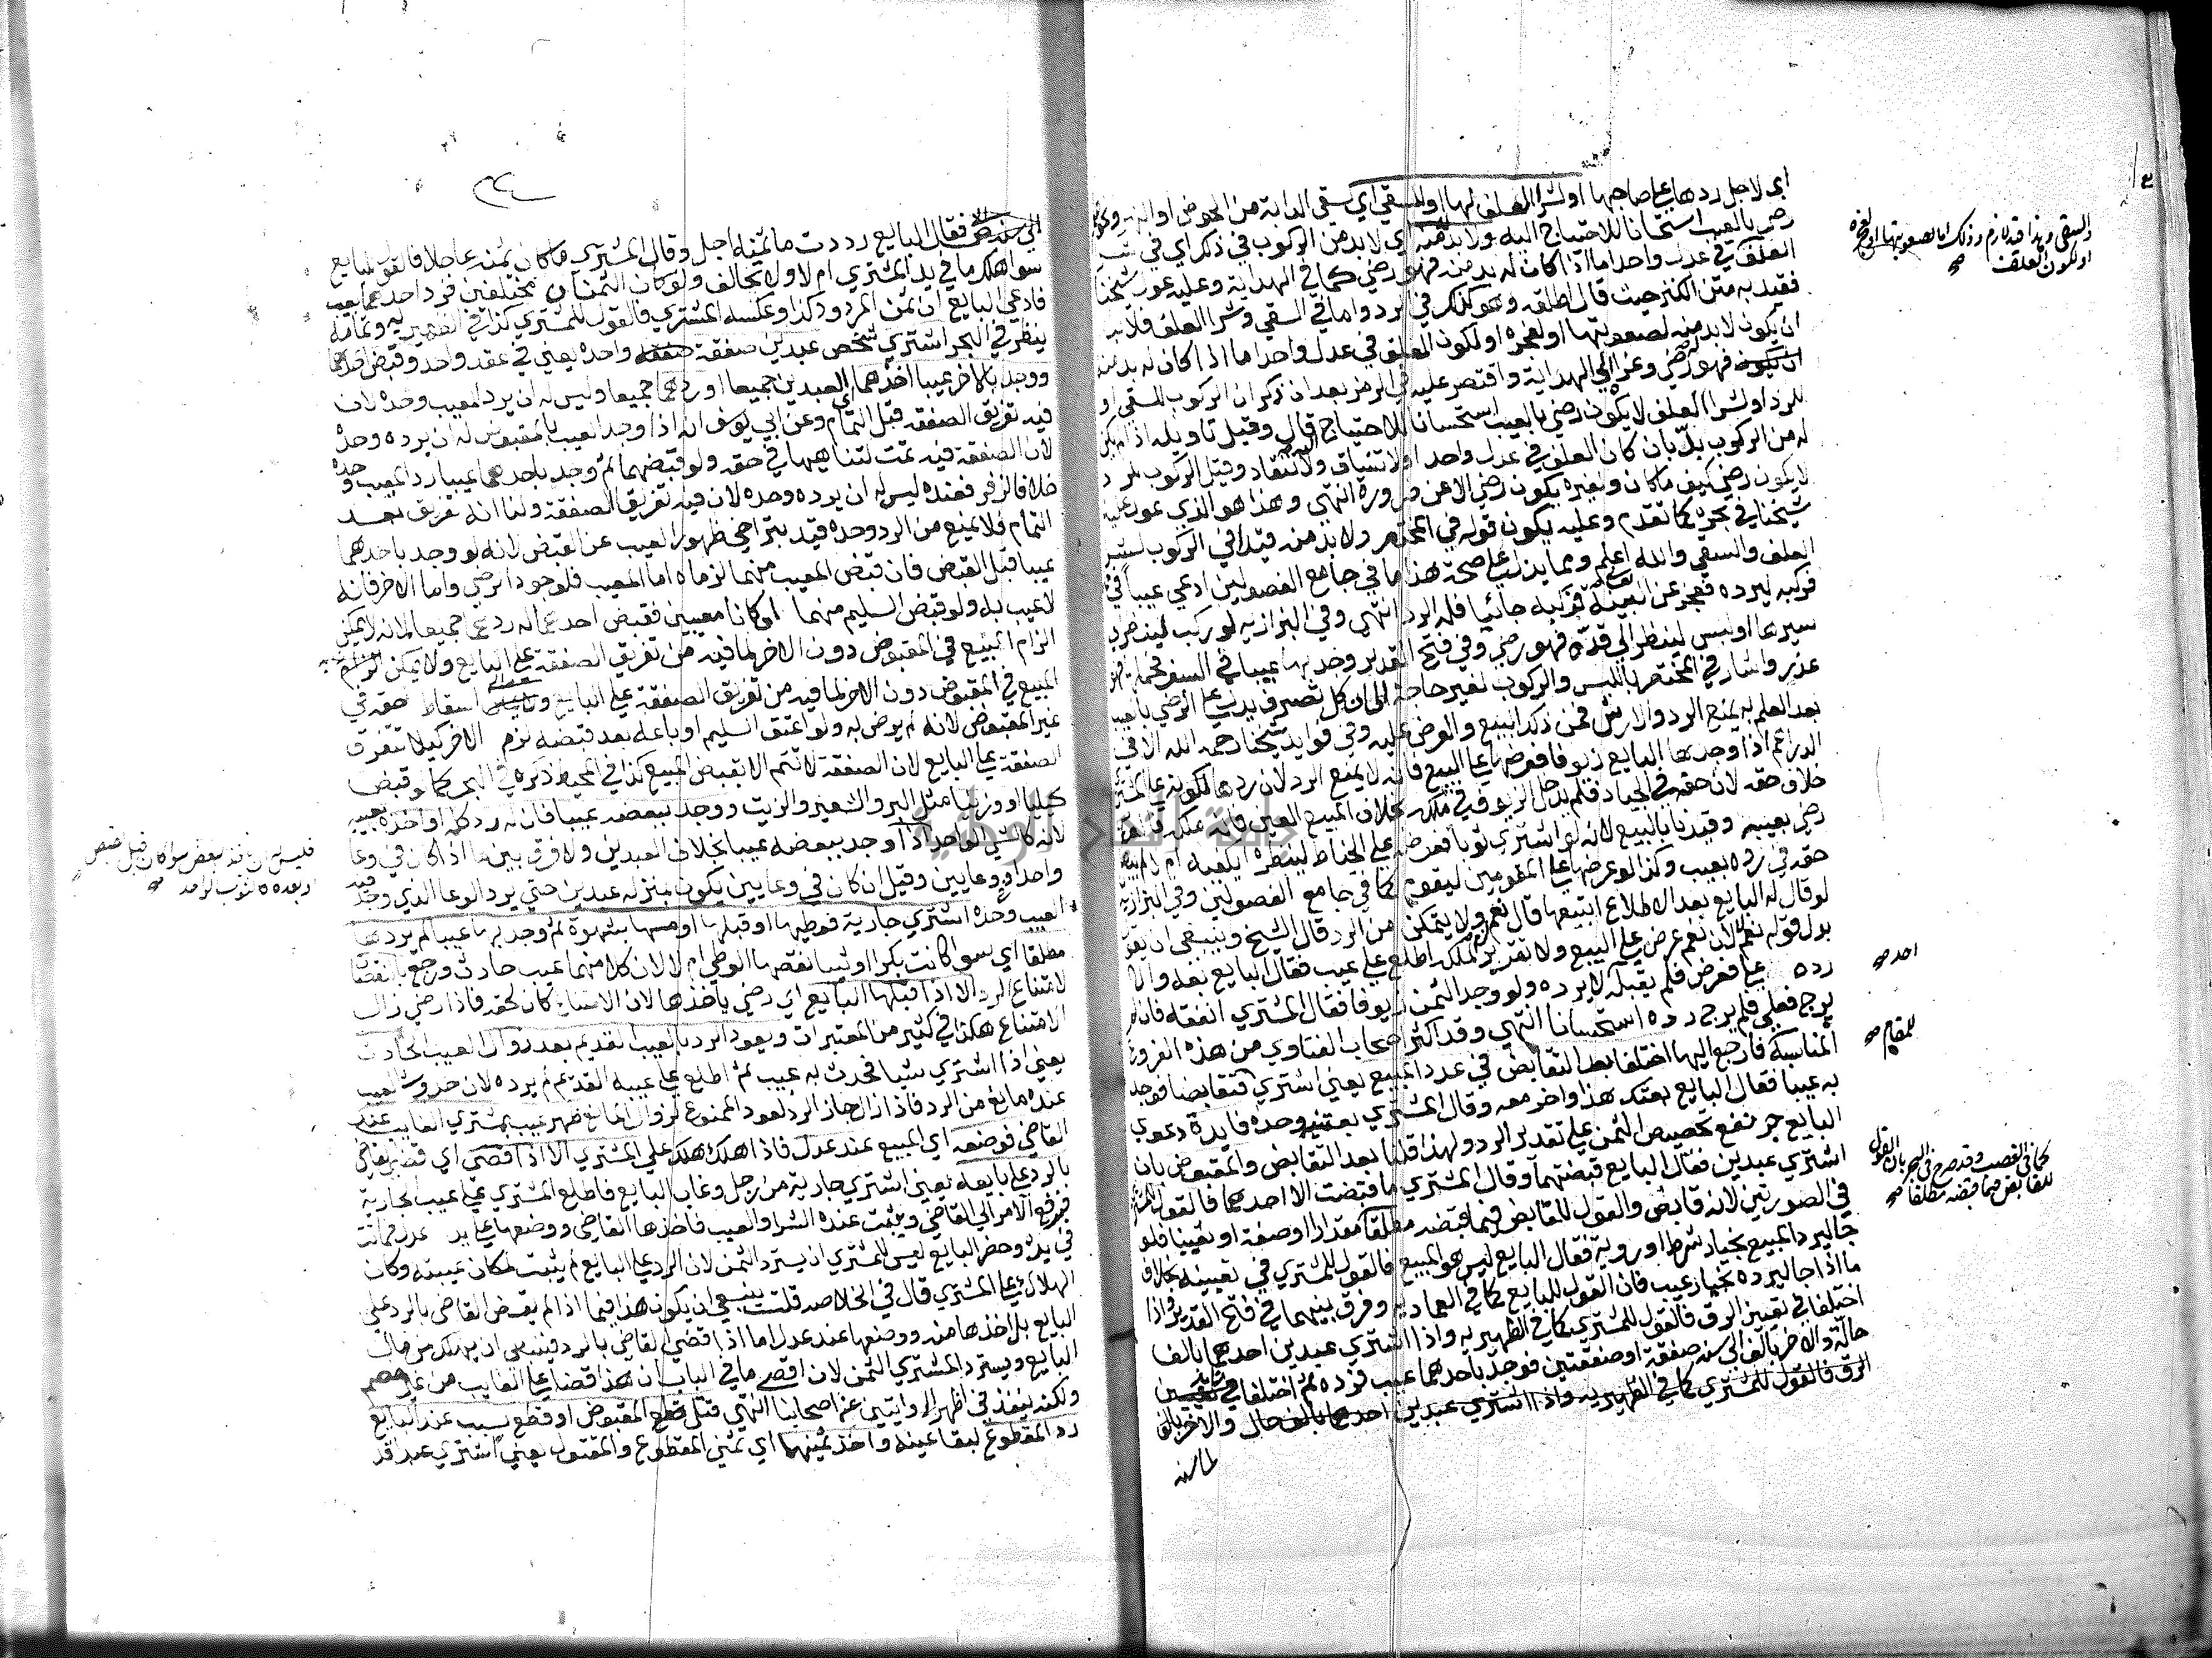 اي لاجل ردها على صاحبها او لشرا العلف لها او للسقي اي سقي الدابة من الحوض او النهر
رضي بالعيب استحسانا للاحتياج اليه ولا بد منه اي لا بد من الركوب في ذكر اي في
العلف في عدل واحد اما اذا كان له بد منه فهو رضي كما في الهداية وعليه عول شيخنا
فقيد به متن الكنز حيث قال اطلقه وهو كذلك في الرد واما في السقي وشرا العلف فلا بد
ان يكون لا بد منه لصعوبتها او لعجزه او لكون العلف في عدل واحد اما اذا كان له بد منه
فهو رضي وعزاه الي الهداية واقتصر عليه في الرمز بعد ان ذكر ان الركوب للسقي او
للرد او لشرا العلف لا يكون رضي بالعيب استحسانا للاحتياج قال وقيل تاويله اذا لم يكن
له من الركوب بد بان كان العلف في عدل واحد او لا تنساق ولا تنقاد وقيل الركوب للرد
لا يكون رضي كيف ما كان ولغيره يكون رضي الا عن ضرورة انتهي وهذا هو الذي عول عليه
شيخنا في بحره كما تقدم وعليه يكون قوله في المختصر ولا بد منه قيدا في الركوب لشرا
العلف والسقي والله اعلم ومما يدل على صحة هذا ما في جامع الفصولين ادعي عيبا في
فركبه ليرده فعجز عن البينة فركبه جائيا فله الرد انتهي وفي البزازية لو ركب لينظر
سيرها او لبس لينظر الي قده فهو رضي وفي فتح القدير وجد بها عيبا في السفر فحملها فهو
عذر واشار في المختصر باللبس والركوب لغير حاجة الى ان كل تصرف يدل على الرضي بالعيب
بعد العلم به يمنع الرد والارش فمن ذلك البيع والعرض عليه وفي فوايد شيخنا رحمه الله الا في
الدراهم اذا وجدها البايع زيوفا فعرضها على البيع فانه لا يمنع الرد لان ردها لكونه على المشتري
خلاف حقه لان حقه في الجياد فلم يدخل الزيوف في ملكه بخلاف المبيع العين فانه ملكه
رضي بعيبه وقيدنا بالبيع لانه لو اشتري ثوبا فعرضه على الخياط لينظره ايكفيه ام لا
حقه في رده بعيب وكذا لو عرضها على المقومين ليقوم كما في جامع الفصولين وفي البزازية
لو قال له البايع بعد الاطلاع اتبيعها قال نعم لزم ولا يتمكن من الرد قال الشيخ وينبغي ان يقول
بدل قوله نعم لا لان نعم عرض على البيع ولا تقرير لملكه اطلع على عيب فقال البايع بعه والا
رده على فعرض فلم يقبله لا يرده ولو وجد الثمن زيوفا فقال المشتري انفقه فان لم
يرج فعلي فلم يرج رده استحسانا انتهي وقد اكثر اصحاب الفتاوي من هذه الفروع
المناسبة فارجع اليها اختلفا بعد التقابض في عدد المبيع يعني اشتري فتقابضا فوجد
به عيبا فقال البايع بعتك هذا واخر معه وقال المشتري بعتنيه وحده فايدة دعوي
البايع جر نفع تخصيص الثمن على تقدير الرد ولهذا قلنا بعد التقابض والمقبوض بان
اشتري عبدين فقال البايع قبضتهما وقال المشتري ما قبضت الا احدهما فالقول للمشتري
في الصورتين لانه قابض والقول للقابض فيما قبضه مطلقا مقدارا او صفة او تعيينا فلو
جا ليرد المبيع بخيار شرط او روية فقال البايع ليس هو المبيع فالقول للمشتري في تعيينه بخلاف
ما اذا جا ليرده بخيار عيب فان القول للبايع كما في العمادية وفرق بينهما في فتح القدير واذا
اختلفا في تعيين الزق فالقول للمشتري كما في الظهيرية واذا اشتري عبدين احدهما بالف
حالة والاخر بالف الى سنة صفقة او صفقتين فوجد باحدهما عيب فرده ثم اختلفا في تعيين
الزق فالقول للمشتري كما في الظهيرية واذا اشتري عبدين احدهما بالف حال والاخر بالف
الى سنة
والسقي وهذا قيد لازم وذلك اما لصعوبتها او لعجزه
او لكون العلف صح
احد صح
للمقام صح
كما في الغصب وقد صرح في البحر بان القول
للقابض فيما قبضه مطلقا صح
فقال البايع رددت ما ثمنه اجل وقال المشتري ما كان ثمنه عاجلا فالقول للبايع
سوا هلك ما في يد المشتري ام لا ولا تحالف ولو كان الثمنان مختلفين فرد احدهما بعيب
فادعي البايع ان ثمن المردود كذا وعكسه المشتري فالقول للمشتري كذا في الظهيرية وتمامه
ينظر في البحر اشتري شخص عبدين صفقة واحدة يعني في عقد واحد وقبض احدهما
ووجد بالاخر عيبا اخذهما اي العبدين جميعا او ردهما جميعا وليس له ان يرد المعيب وحده لان
فيه تفريق الصفقة قبل التمام وعن ابي يوسف انه اذا وجد العيب بالمقبوض له ان يرده وحده
لان الصفقة فيه تمت لتناهيها في حقه ولو قبضهما ثم وجد باحدهما عيبا رد المعيب وحده
خلافا لزفر فعنده ليس له ان يرده وحده لان فيه تفريق الصفقة ولنا انه تفريق بعد
التمام فلا يمنع من الرد وحده قيد بتراخي ظهور العيب عن القبض لانه لو وجد باحدهما
عيبا قبل القبض فان قبض المعيب منهما لزماه اما المعيب فلوجود الرضي واما الاخر فلانه
لا عيب به ولو قبض السليم منهما او كانا معيبين فقبض احدهما له ردهما جميعا لانه لا يمكن
الزام المبيع في المقبوض دون الاخر لما فيه من تفريق الصفقة على البايع ولا يمكن الزام
المبيع في المقبوض دون الاخر لما فيه من تفريق الصفقة على البايع اسقاط حقه في
غير المقبوض لانه لم يرض به ولو اعتق السليم او باعه بعد قبضه لزم الاخر كيلا تتفرق
الصفقة على البايع لان الصفقة لا تتم الا بقبض المبيع كذا في المحيط ذكره في البحر كما لو قبض
كيليا او وزنيا مثل البر والشعير والزيت ووجد ببعضه عيبا فان له رد كله او اخذه بعيبه
لانه كالشي الواحد اذا وجد ببعضه عيبا بخلاف العبدين ولا فرق بين ما اذا كان في وعا
واحد او وعايين وقيل ان كان في وعايين يكون بمنزلة عبدين حتي يرد الوعا الذي وجد فيه
العيب وحده اشتري جارية فوطيها او قبلها او مسها بشهوة ثم وجد بها عيبا لم يردها
مطلقا اي سوا كانت بكرا او ثيبا نقصها الوطي ام لا لان كلا منهما عيب حادث ورجع بالنقصان
لامتناع الرد الا اذا قبلها البايع اي رضي ياخذها لان الامتناع كان لحقه فاذا رضي زال
الامتناع هكذا في كثير من المعتبرات ويعود الرد بالعيب القديم بعد زوال العيب الحادث
يعني اذا اشتري شيا فحدث به عيب ثم اطلع على عيبه القديم لم يرده لان حدوث العيب
عنده مانع من الرد فاذا زال جاز الرد لعود الممنوع لزوال المانع ظهر عيب بمشتري الغايب عند
القاضي فوضعه اي المبيع عند عدل فاذا هلك هلك على المشتري الا اذا قضي اي قضي القاضي
بالرد على بايعه يعني اشتري جارية من رجل وغاب البايع فاطلع المشتري على عيب بالجارية
فرفع الامر الي القاضي ويثبت عنده الشرا والعيب فاخذها القاضي ووضعها على يد عدل فماتت
في يده وحضر البايع ليس للمشتري ان يسترد الثمن لان الرد على البايع لم يثبت لمكان غيبته وكان
الهلاك على المشتري قال في الخلاصه قلت ينبغي ان يكون هذا فيما اذا لم يقض القاضي بالرد على
البايع بل اخذها منه ووضعها عند عدل اما اذا قضي القاضي بالرد فينبغي ان يهلك من مال
البايع ويسترد المشتري الثمن لان اقصي ما في الباب ان هذا قضا على الغايب من غير خصم
ولكنه ينفذ في اظهر الروايتين عن اصحابنا انتهي قتل المقبوض او قطع بسبب عند البايع
رد المقطوع لبقا عينه واخذ ثمنيهما اي ثمني المقطوع والمقتول يعني اشتري عبدا قد